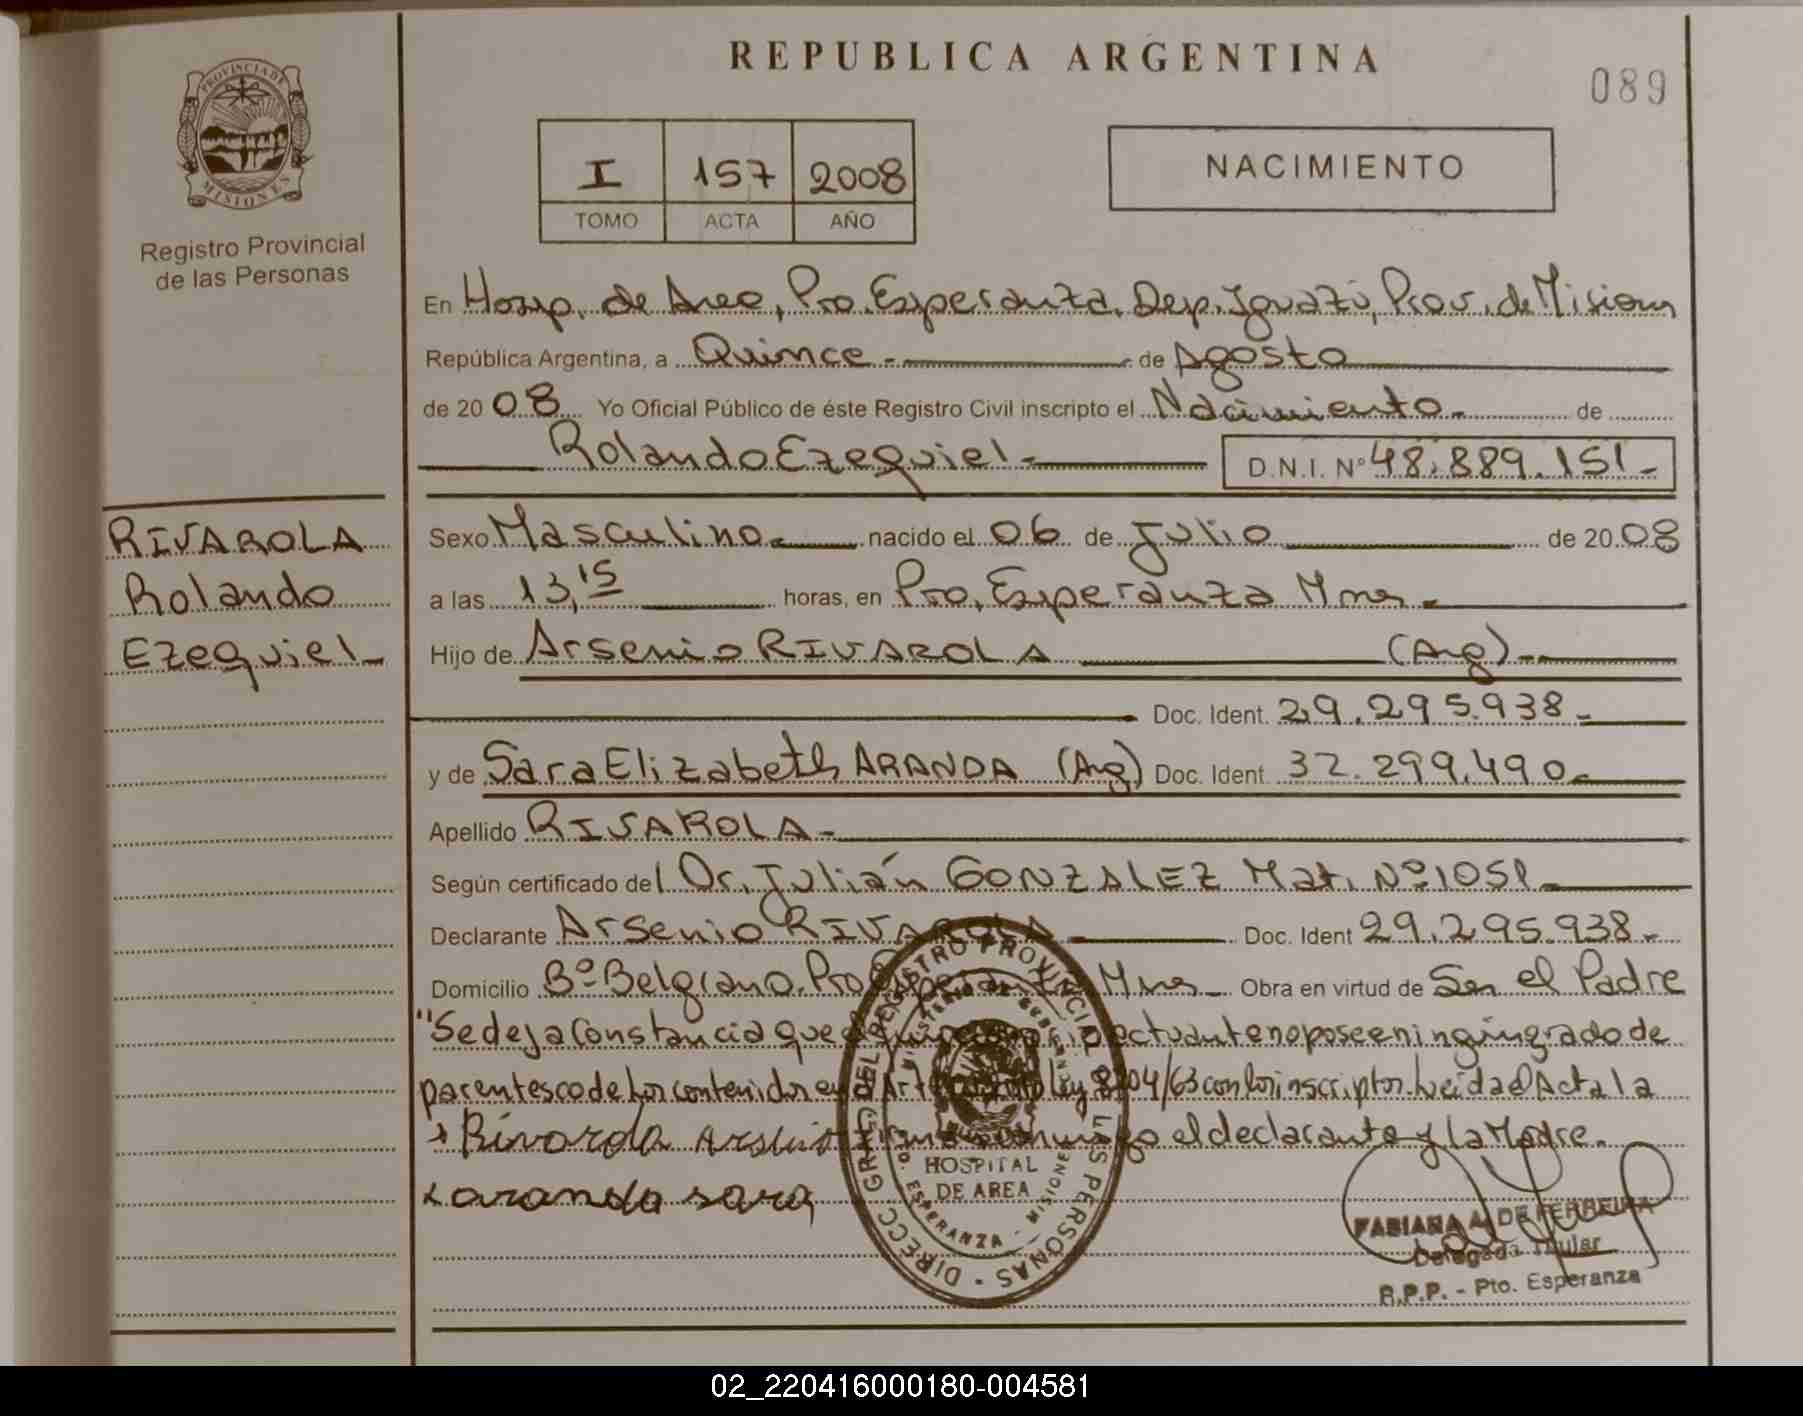 REPUBLICA ARGENTINA
089
PROVINCIA DE
MISIONES
Registro Provincial
de las Personas
I 157 2008
TOMO ACTA AÑO
NACIMIENTO
En Hosp. de Area, Pto. Esperanza, Dep. Iguazú, Prov. de Misiones
República Argentina, a Quince.- de Agosto
de 20 08 Yo Oficial Público de éste Registro Civil inscripto el Nacimiento.- de
Rolando Ezequiel.- D.N.I. Nº 48.889.151.-
RIVAROLA
Rolando
Ezequiel.-
Sexo Masculino.- nacido el 06 de Julio de 20 08
a las 13,15 horas, en Pto. Esperanza Mnes.-
Hijo de Arsenio RIVAROLA (Arg).-
Doc. Ident. 29.295.938.-
y de Sara Elizabeth ARANDA (Arg) Doc. Ident. 32.299.490.-
Apellido RIVAROLA.-
Según certificado del Dr. Julián GONZALEZ Mat. Nº 1051.-
Declarante Arsenio RIVAROLA Doc. Ident 29.295.938.-
Domicilio Bº Belgrano. Pto Esperanza Mnes.- Obra en virtud de Ser el Padre
"Se deja Constancia que el actuante no posee ningún grado de
parentesco de los contenidos en el Art Ley 8204/63 con los inscriptos. Leída el Acta la
x Rivarola Arsenio firman conmigo el declarante y la Madre.
x aranda sara
DIRECC. GRAL. DEL REGISTRO PROVINCIAL DE LAS PERSONAS
MINISTERIO DE GOBIERNO
HOSPITAL
DE AREA
PTO. ESPERANZA - MISIONES
FABIANA A. DE FERREIRA
Delegada Titular
R.P.P. - Pto. Esperanza
02_220416000180-004581